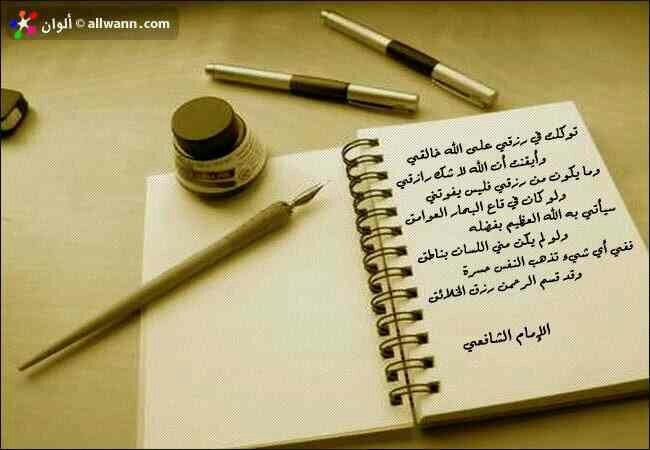 ألوان © allwann.com
توكلت في رزقي على الله خالقي
وأيقنت أن الله لا شك رازقي
وما يكون من رزقي فليس يفوتني
ولو كان في قاع البحار العوامق
سيأتي به الله العظيم بفضله
ولو لم يكن مني اللسان بناطق
ففي أي شيء تذهب النفس حسرة
وقد قسم الرحمن رزق الخلائق
الإمام الشافعي